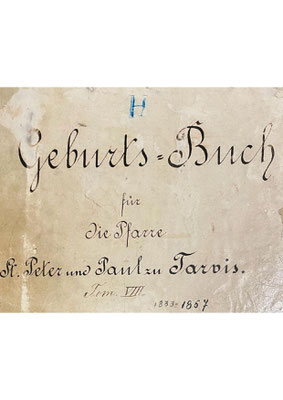 H
Geburts=Buch
für
die Pfarre
St. Peter und Paul zu Tarvis.
Tom. VIII.
1839-1857